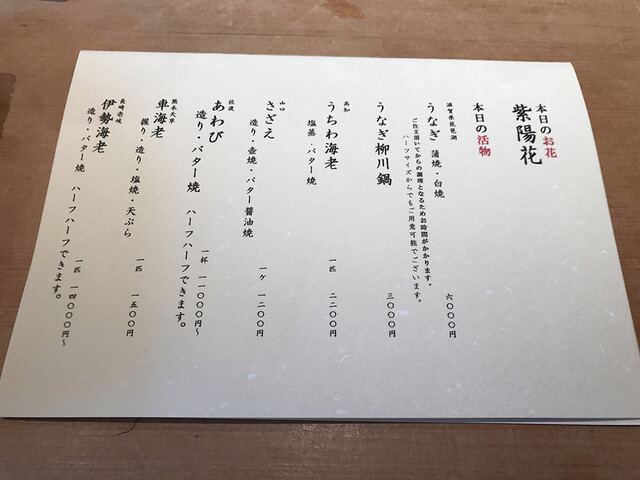 本日のお花
紫陽花
本日の活物
滋賀県琵琶湖
うなぎ 蒲焼・白焼 六〇〇〇円
ご注文頂いてからの調理となるためお時間がかかります。
ハーフサイズからでもご用意可能でございます。
うなぎ柳川鍋 三〇〇〇円
高知
うちわ海老 一匹 二二〇〇円
塩蒸・バター焼
山口
さざえ 一ケ 一二〇〇円
造り・壺焼・バター醤油焼
佐渡
あわび 一杯 一一〇〇〇円〜
造り・バター焼 ハーフハーフできます。
熊本天草
車海老 一匹 一五〇〇円
握り・造り・塩焼・天ぷら
長崎壱岐
伊勢海老 一匹 一四〇〇〇円〜
造り・バター焼 ハーフハーフできます。